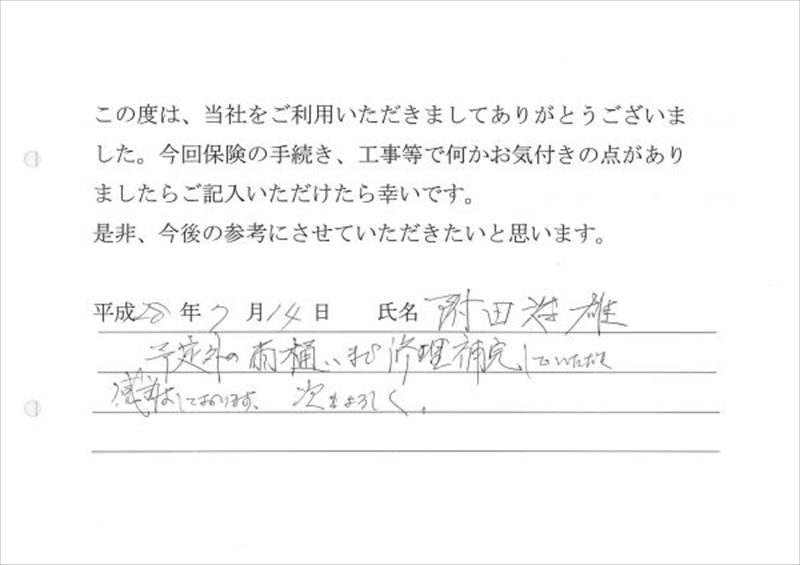 この度は、当社をご利用いただきましてありがとうございま
した。今回保険の手続き、工事等で何かお気付きの点があり
ましたらご記入いただけたら幸いです。
是非、今後の参考にさせていただきたいと思います。
平成28年7月14日 氏名 附田 雄
予定外の雨樋いまで修理補完していただき
感謝しております。次もよろしく。